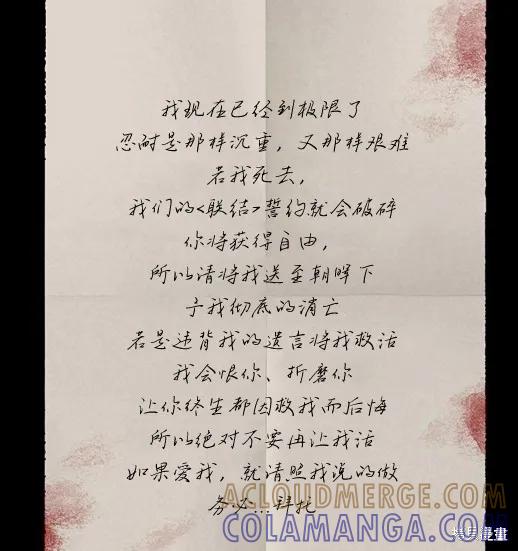 我现在已经到极限了
忍耐是那样沉重，又那样艰难
若我死去，
我们的<联结>誓约就会破碎
你将获得自由，
所以请将我送至朝晖下
予我彻底的消亡
若是违背我的遗言将我救活
我会恨你、折磨你
让你终生都因救我而后悔
所以绝对不要再让我活
如果爱我，就请照我说的做
务必...拜托
ACLOUDMERGE.COM
COLAMANGA.COM
漫畫